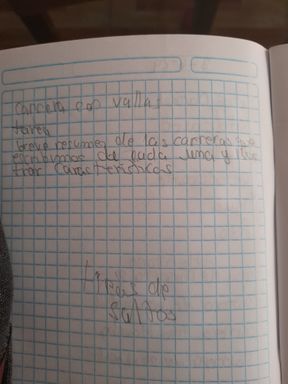 Carrera con vallas
tarea
breve resumen de las carreras
escribimos de cada una y
trar características
tipos de
saltos